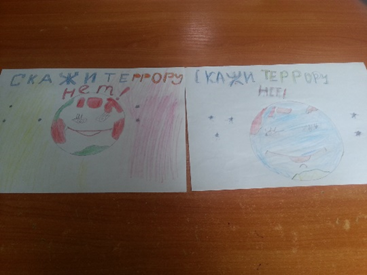 СКАЖИ ТЕРРОРУ
НЕТ!
СКАЖИ ТЕРРОРУ
НЕТ!